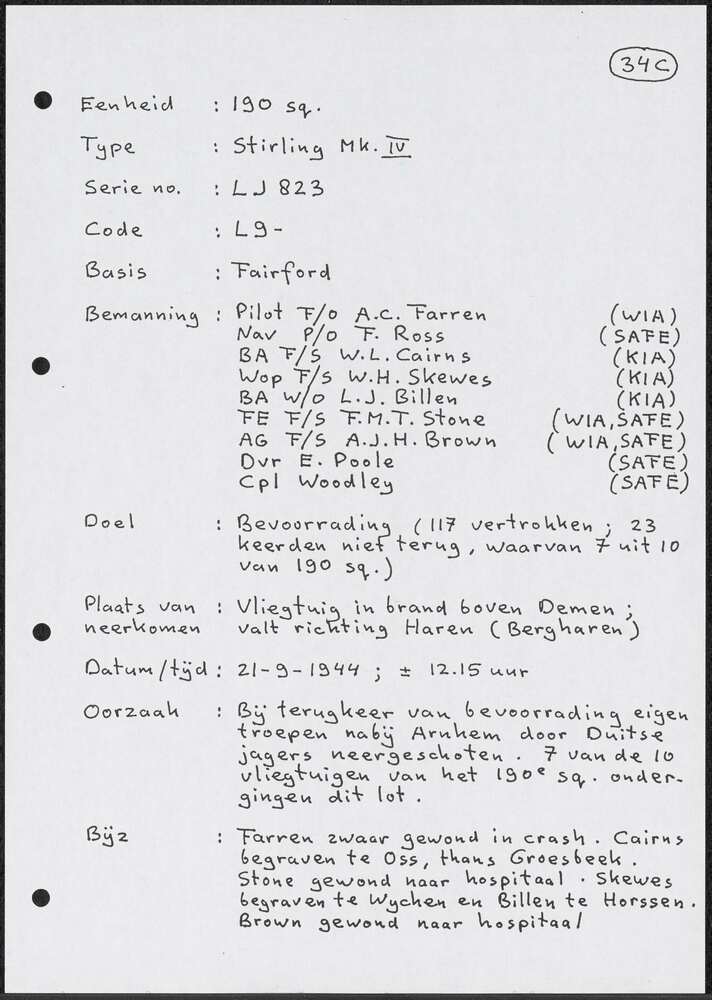 34C
Eenheid : 190 sq.
Type : Stirling Mk. IV
Serie no. : LJ 823
Code : L9-
Basis : Fairford
Bemanning : Pilot F/O A.C. Farren (WIA)
Nav P/O F. Ross (SAFE)
BA F/S W.L. Cairns (KIA)
Wop F/S W.H. Skewes (KIA)
BA W/O L.J. Billen (KIA)
FE F/S F.M.T. Stone (WIA, SAFE)
AG F/S A.J.H. Brown (WIA, SAFE)
Dvr E. Poole (SAFE)
Cpl Woodley (SAFE)
Doel : Bevoorrading (117 vertrokken ; 23
keerden niet terug, waarvan 7 uit 10
van 190 sq.)
Plaats van : Vliegtuig in brand boven Demen ;
neerkomen valt richting Haren (Bergharen)
Datum/tijd : 21-9-1944 ; ± 12.15 uur
Oorzaak : Bij terugkeer van bevoorrading eigen
troepen nabij Arnhem door Duitse
jagers neergeschoten. 7 van de 10
vliegtuigen van het 190e sq. onder-
gingen dit lot.
Bijz : Farren zwaar gewond in crash. Cairns
begraven te Oss, thans Groesbeek.
Stone gewond naar hospitaal. Skewes
begraven te Wychen en Billen te Horssen.
Brown gewond naar hospitaal